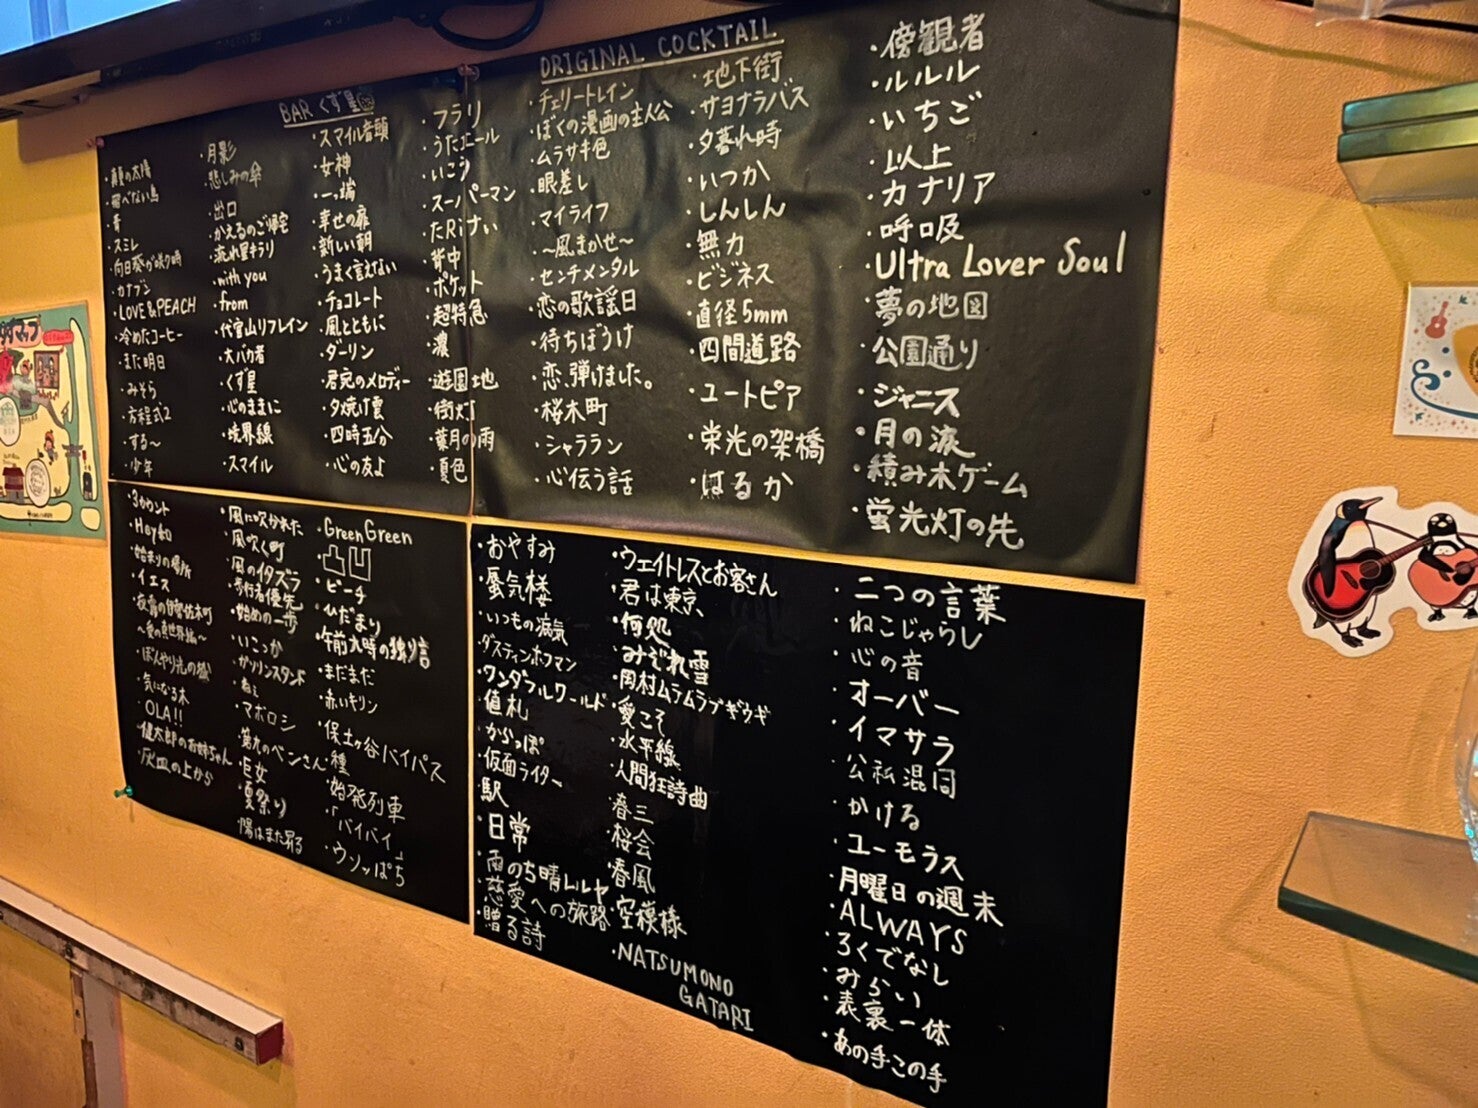 BAR くず星
ORIGINAL COCKTAIL
・真夏の太陽
・飛べない鳥
・青
・スミレ
・向日葵が咲く時
・カナブン
・LOVE&PEACH
・冷めたコーヒー
・また明日
・みそら
・方程式2
・する〜
・少年
・月影
・悲しみの傘
・出口
・かえるのご帰宅
・流れ星キラリ
・with you
・from
・代官山リフレイン
・大バカ者
・くず星
・心のままに
・境界線
・スマイル
・スマイル音頭
・女神
・一端
・幸せの扉
・新しい朝
・うまく言えない
・チョコレート
・風とともに
・ダーリン
・君宛のメロディー
・夕焼け雲
・四時五分
・心の友よ
・フラリ
・うたエール
・いこう
・スーパーマン
・背中
・ポケット
・超特急
・濃
・遊園地
・街灯
・葉月の雨
・夏色
・チェリートレイン
・ぼくの漫画の主人公
・ムラサキ色
・眼差し
・マイライフ
〜風まかせ〜
・センチメンタル
・恋の歌謡日
・待ちぼうけ
・恋、弾けました。
・桜木町
・シャララン
・心伝う話
・地下街
・サヨナラバス
・夕暮れ時
・いつか
・しんしん
・無力
・ビジネス
・直径5mm
・四間道路
・ユートピア
・栄光の架橋
・はるか
・傍観者
・ルルル
・いちご
・以上
・カナリア
・呼吸
・Ultra Lover Soul
・夢の地図
・公園通り
・ジャニス
・月の涙
・積み木ゲーム
・蛍光灯の先
・3カウント
・Hey和
・始まりの場所
・イエス
・寂霧の日賀佐木町
〜愛の裏世界編〜
・ぼんやり光の城
・気になる木
・OLA!!
・健太郎のお姉ちゃん
・灰皿の上から
・風に吹かれた
・風吹く町
・風のイタズラ
・歩行者優先
・始めの一歩
・いこっか
・ガソリンスタンド
・ねぇ
・マボロシ
・第九のベンさん
・巨女
・夏祭り
・陽はまた昇る
・GreenGreen
・凸凹
・ビーチ
・ひだまり
・午前九時の独り言
・まだまだ
・赤いキリン
・保土ヶ谷バイパス
・種
・始発列車
・「バイバイ」
・ウソっぱち
・おやすみ
・蜃気楼
・いつもの病気
・ダスティンホフマン
・ワンダフルワールド
・値札
・からっぽ
・仮面ライター
・駅
・日常
・雨のち晴レルヤ
・慈愛への旅路
・贈る詩
・ウェイトレスとお客さん
・君は東京、
・何処
・みぞれ雪
・岡村ムラムラブギウギ
・愛こそ
・水平線
・人間狂詩曲
・春三
・桜会
・春風
・空模様
・NATSUMONO
GATARI
・二つの言葉
・ねこじゃらし
・心の音
・オーバー
・イマサラ
・公私混同
・かける
・ユーモラス
・月曜日の週末
・ALWAYS
・ろくでなし
・みらい
・表裏一体
・あの手この手